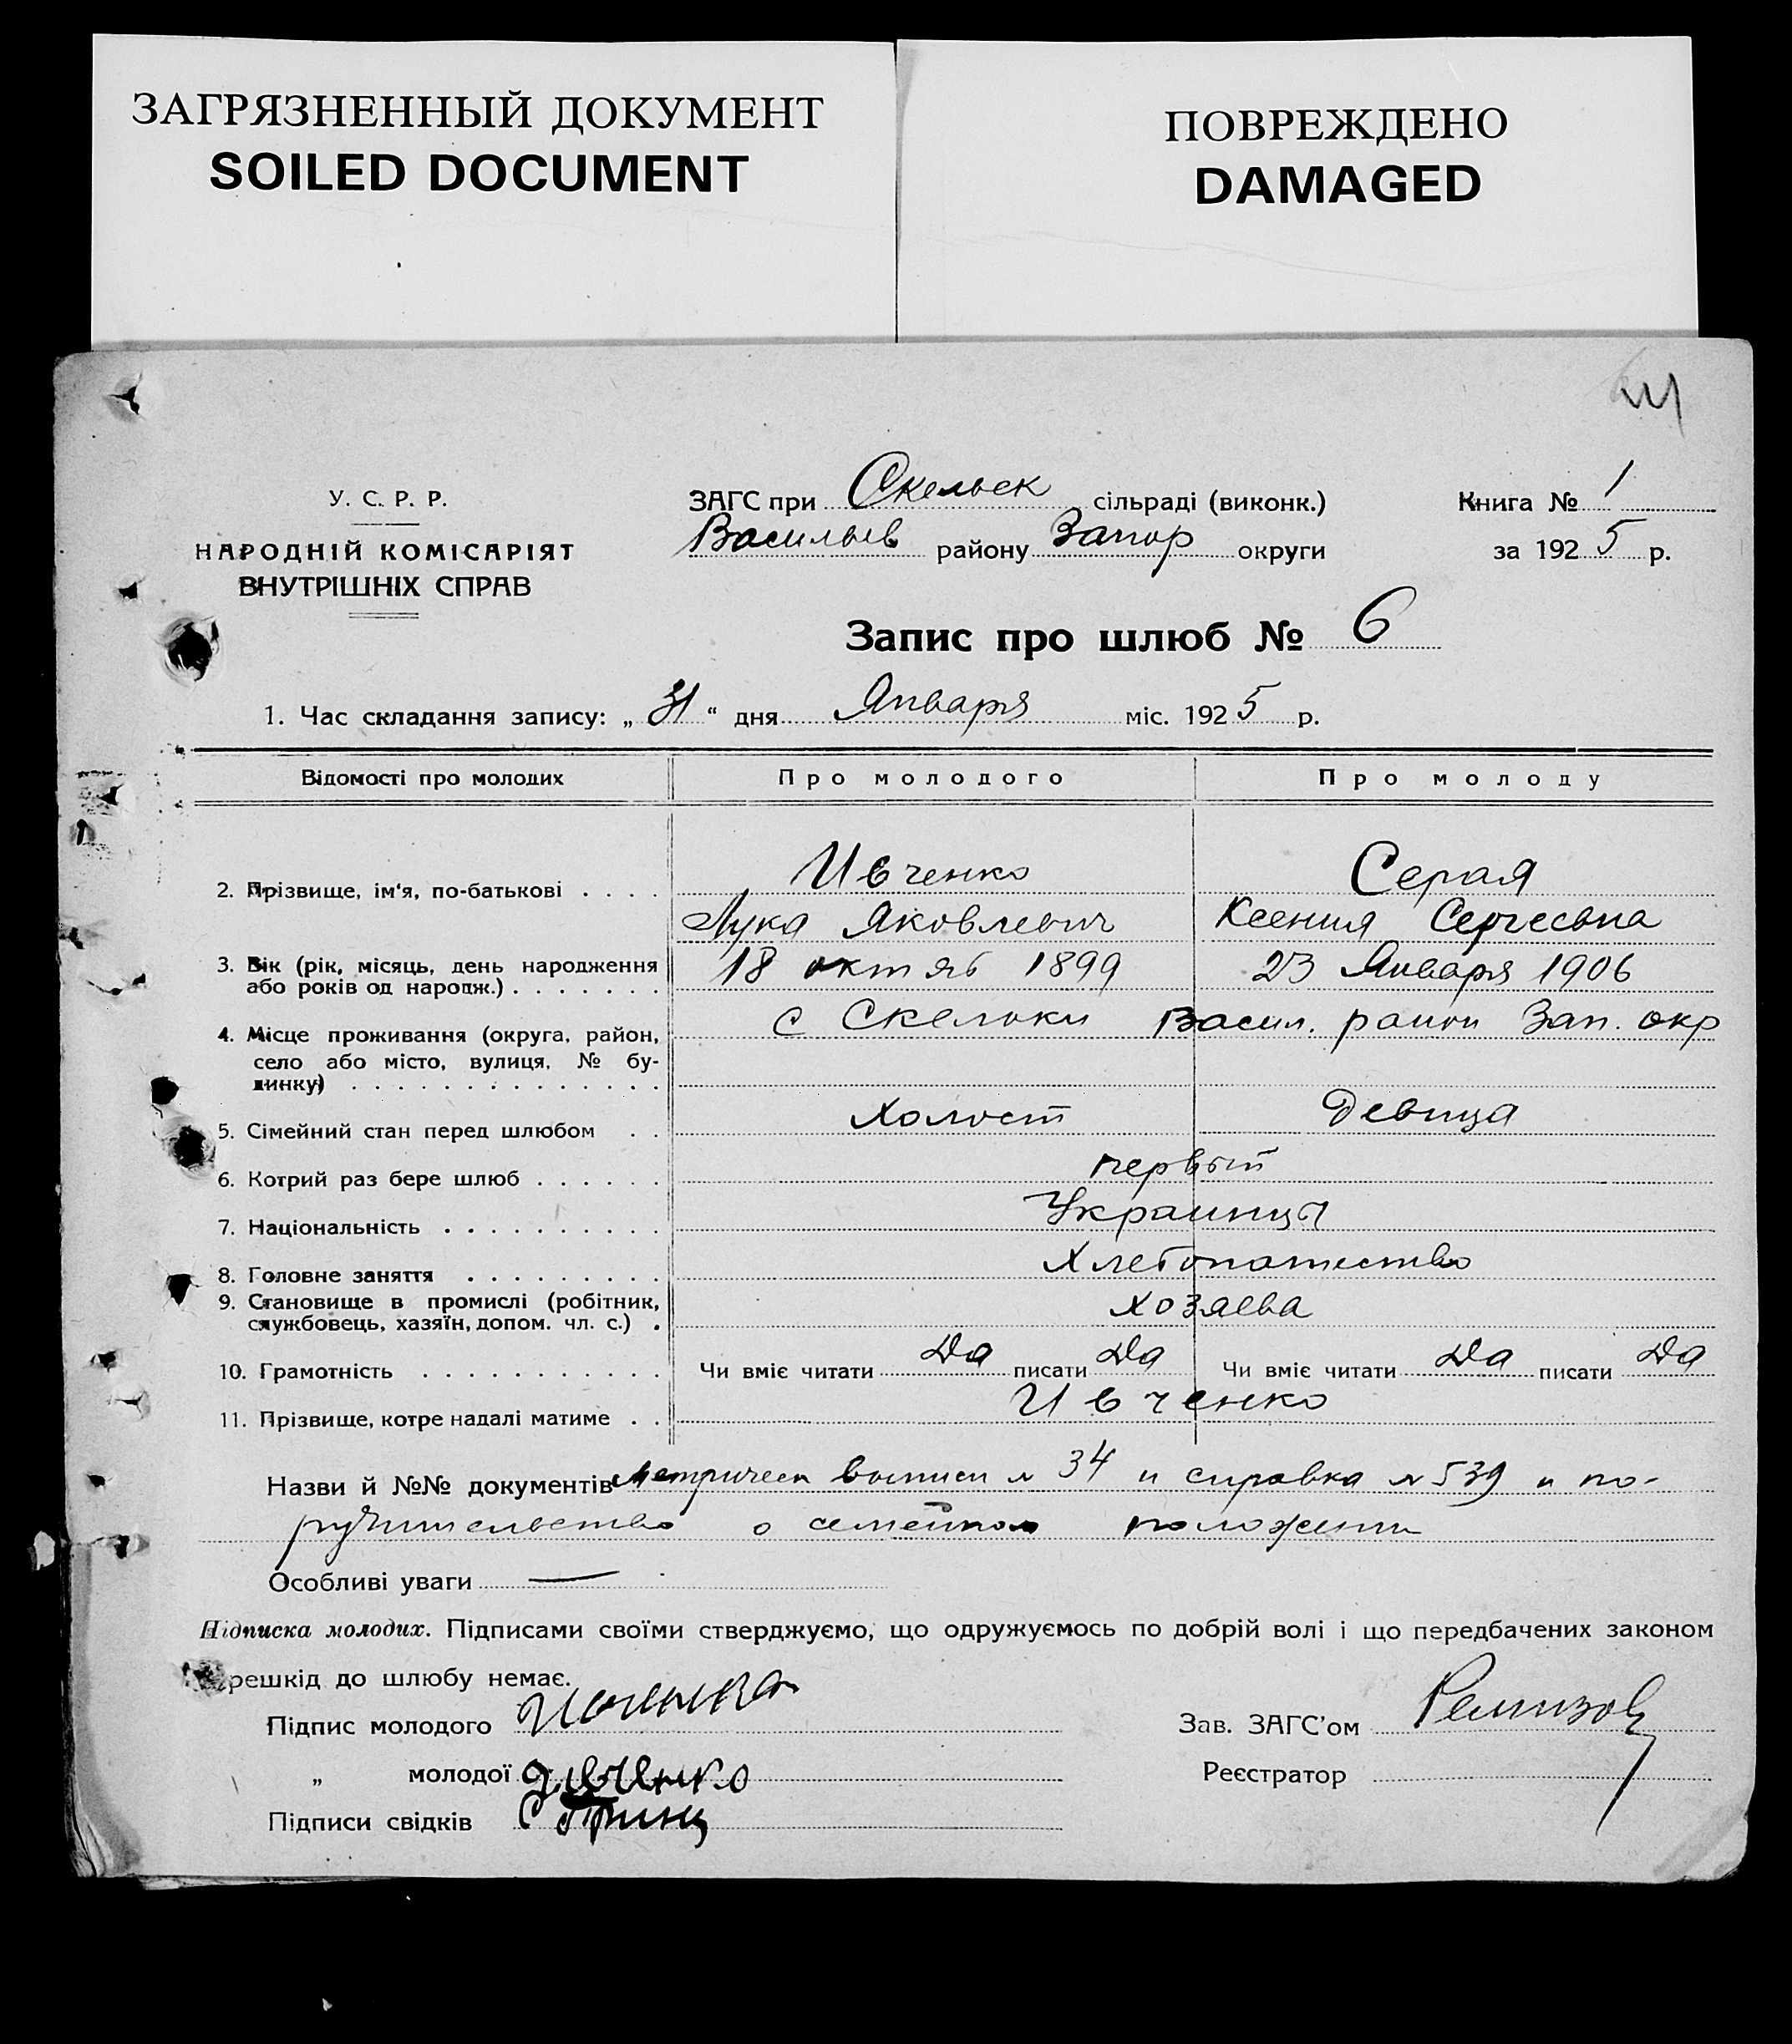 ЗАГРЯЗНЕННЫЙ ДОКУМЕНТ
SOILED DOCUMENT
ПОВРЕЖДЕНО
DAMAGED
У. С. Р. Р.
НАРОДНІЙ КОМІСАРІЯТ
ВНУТРІШНІХ СПРАВ
ЗАГС при Скельск сільраді (виконк.)
Васильев району Запор округи
Книга № 1
за 1925 р.
Запис про шлюб № 6
1. Час складання запису: „ 31 “ дня Января міс. 1925 р.
Відомості про молодих Про молодого Про молоду
2. Прізвище, ім'я, по-батькові . . . . Ивченко Серая
Лука Яковлевич Ксения Сергеевна
3. Вік (рік, місяць, день народження 18 октяб 1899 23 Января 1906
або років од народж.) . . . . . . .
4. Місце проживання (округа, район, с Скельки Васил. район Зап. окр
село або місто, вулиця, № бу-
динку) . . . . . . . . . . . . . .
5. Сімейний стан перед шлюбом . . Холост Девица
6. Котрий раз бере шлюб . . . . . . первый
7. Національність . . . . . . . . . . Украинцы
8. Головне заняття . . . . . . . . . Хлебопашество
9. Становище в промислі (робітник, хозяева
службовець, хазяїн, допом. чл. с.) .
10. Грамотність . . . . . . . . . . . Чи вміє читати Да писати Да Чи вміє читати Да писати Да
11. Прізвище, котре надалі матиме . . Ивченко
Назви й №№ документів Метрическ выписи № 34 и справка № 539 и по-
ручительство о семейном положении
Особливі уваги —
Підписка молодих. Підписами своїми стверджуємо, що одружуємось по добрій волі і що передбачених законом
перешкід до шлюбу немає.
Підпис молодого
Зав. ЗАГС'ом Ремизов
„ молодої Ивченко
Реєстратор
Підписи свідків